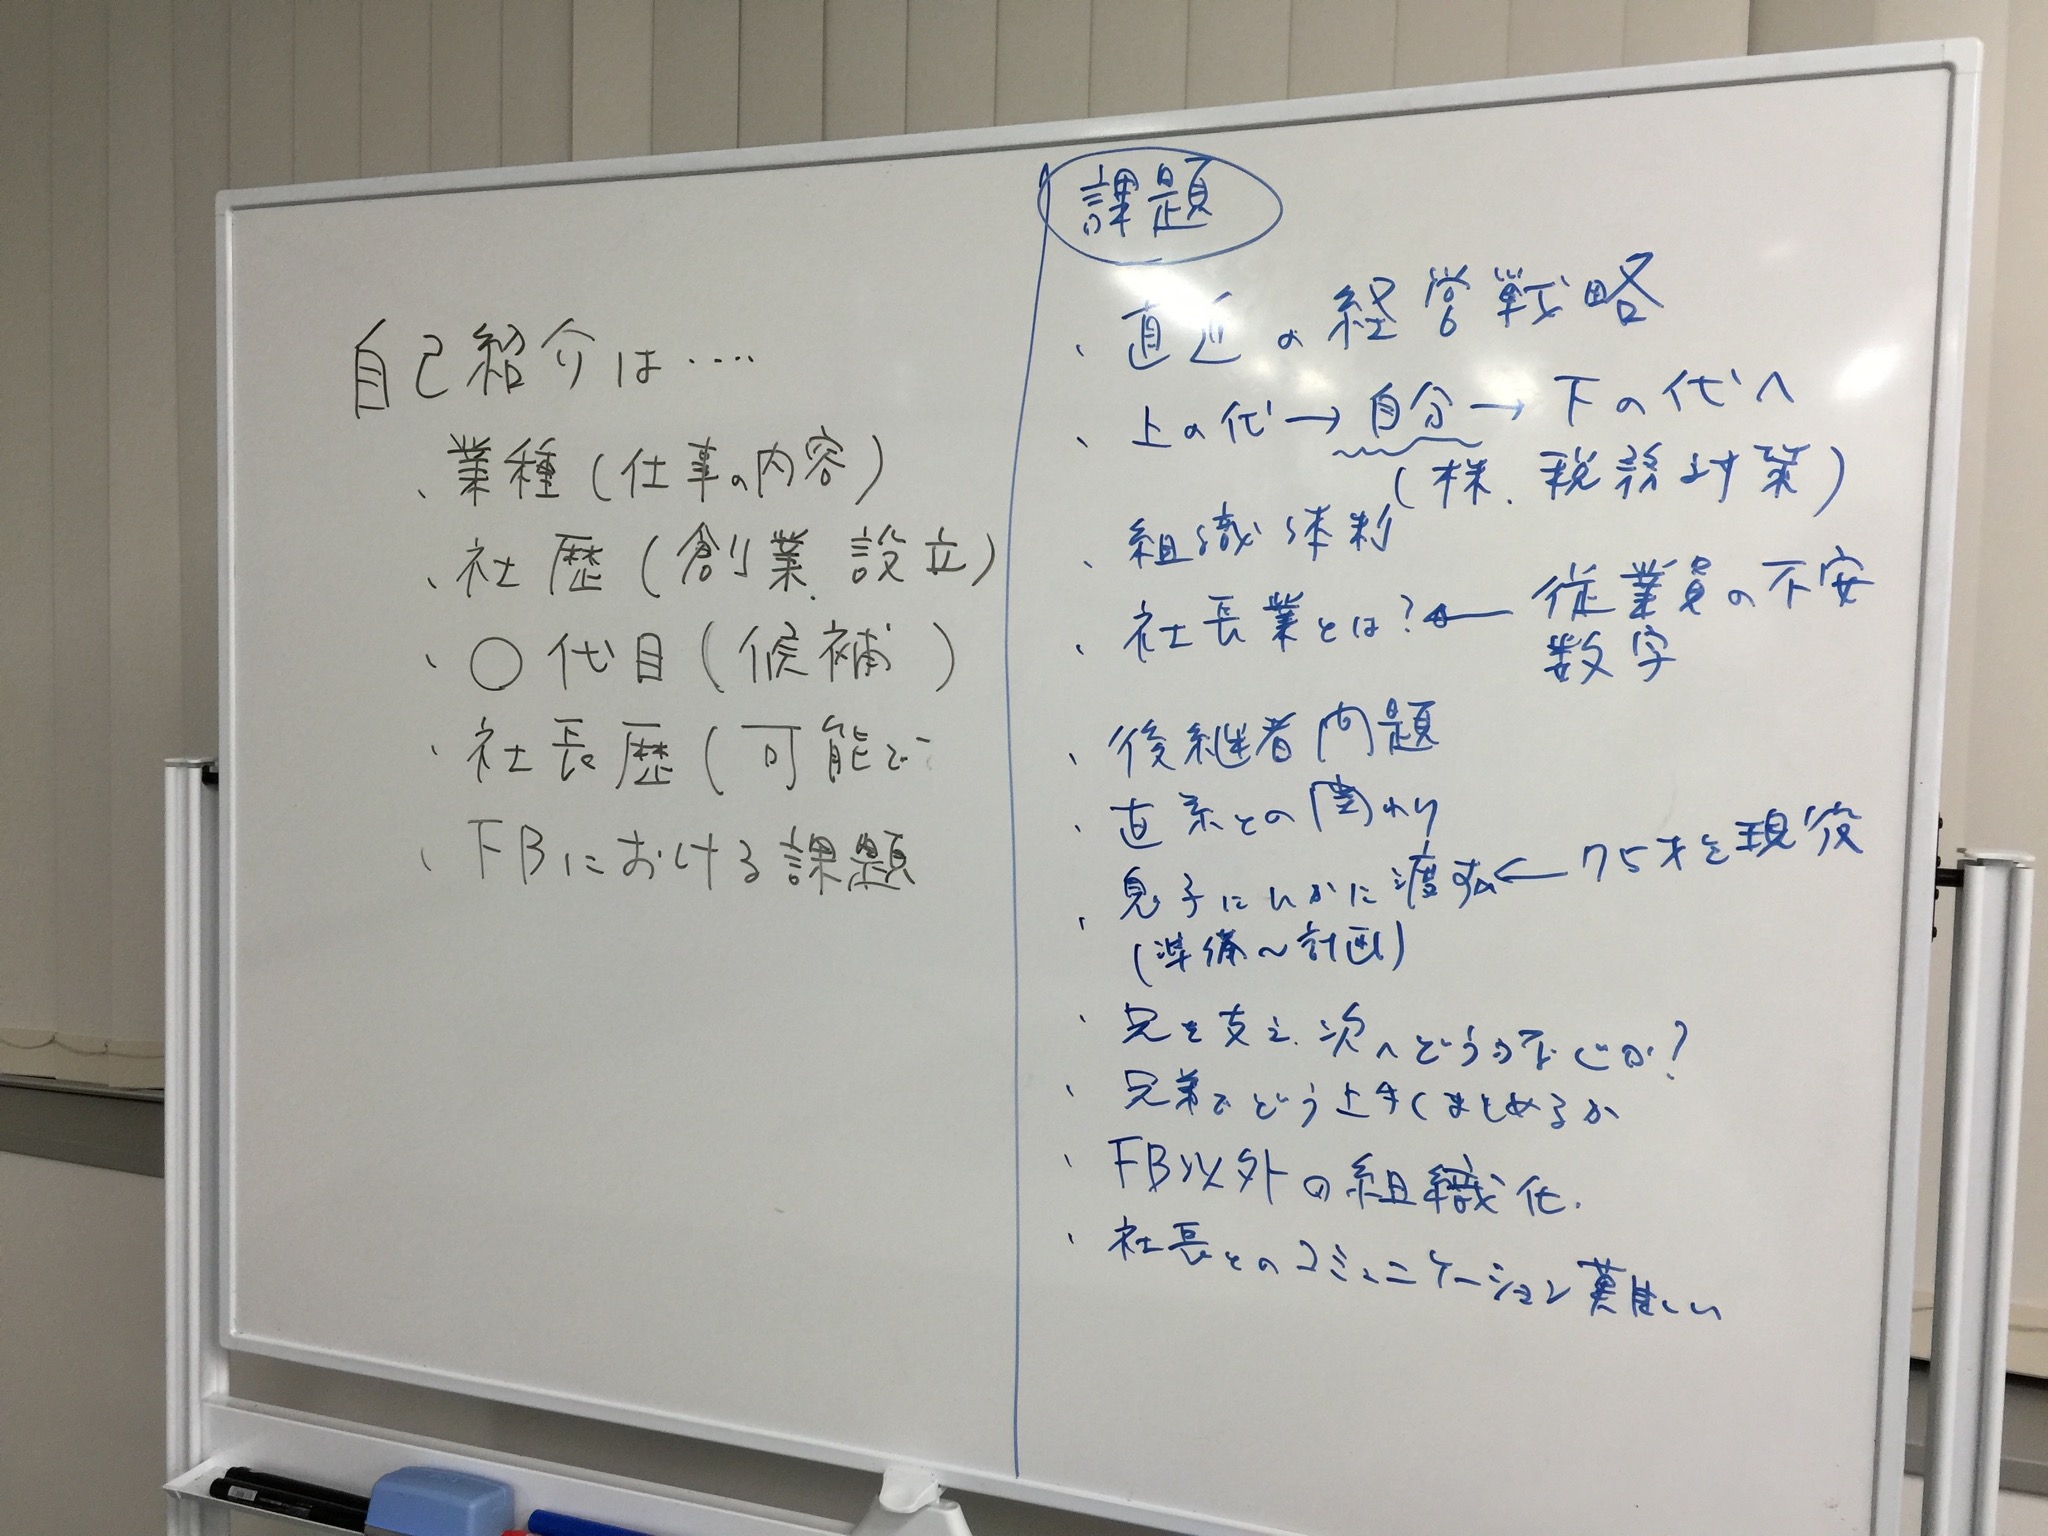 自己紹介は‥‥
、業種(仕事の内容)
、社歴(創業、設立)
、○代目(候補 )
、社長歴(可能で
、FBにおける課題
課題
、直近の経営戦略
、上の代→自分→下の代へ
(株、税務対策)
、組織体制
、社長業とは?← 従業員の不安
数字
、後継者問題
、直系との関わり
、息子にいかに渡すか←75才を現役
(準備〜計画)
、兄を支え、次へどうつなぐか?
、兄弟でどう上手くまとめるか
、FB以外の組織化.
、社長とのコミュニケーション難しい